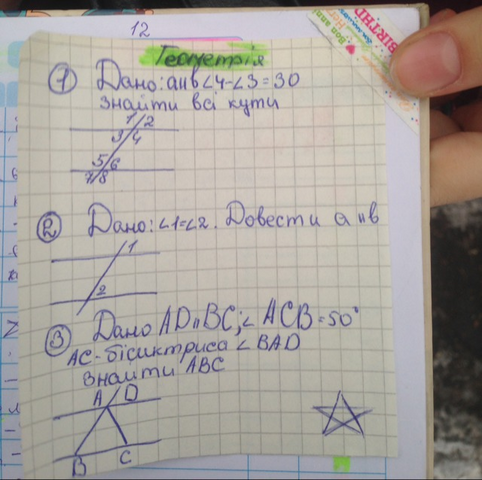 12
Геометрія
① Дано: a॥b ∠4-∠3=30
знайти всі кути
1/2
3/4
5/6
7/8
② Дано: ∠1=∠2. Довести a॥в
1
2
③ Дано AD॥BC; ∠ACB=50°
AC-бісиктриса ∠BAD
Знайти ABC
A D
B C
BIRTHD